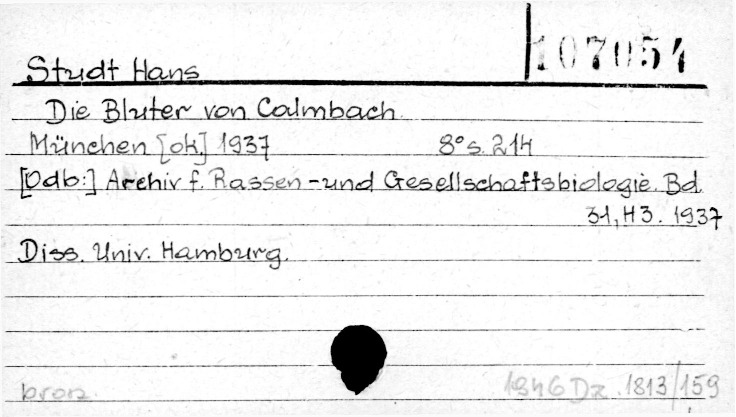 107054
Studt Hans
Die Bluter von Calmbach.
München [ok.] 1937 8° s. 214
[Odb:] Archiv f. Rassen-und Gesellschaftsbiologie. Bd.
31, H3. 1937
Diss. Univ. Hamburg.
brosz.
1946 Dz. 1813/159